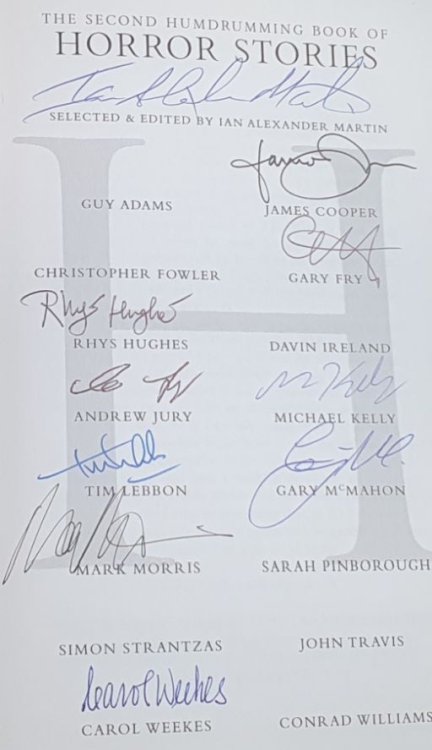 THE SECOND HUMDRUMMING BOOK OF
HORROR STORIES
SELECTED & EDITED BY IAN ALEXANDER MARTIN
GUY ADAMS
JAMES COOPER
CHRISTOPHER FOWLER
GARY FRY
Rhys Hughes
RHYS HUGHES
DAVIN IRELAND
ANDREW JURY
MICHAEL KELLY
TIM LEBBON
GARY MCMAHON
MARK MORRIS
SARAH PINBOROUGH
SIMON STRANTZAS
JOHN TRAVIS
Carol Weekes
CAROL WEEKES
CONRAD WILLIAMS